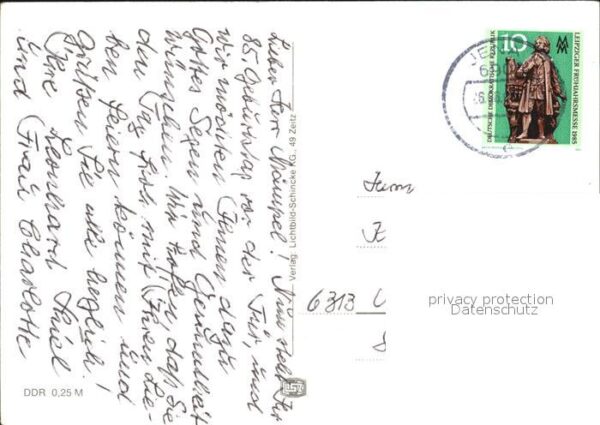 Lieber Herr Mämpel! Nun steht Ihr
85. Geburtstag vor der Tür, und
wir möchten Ihnen dazu
Gottes Segen und Gesundheit
wünschen. Wir hoffen, daß Sie
den Tag froh mit Ihren Lie-
ben feiern können und
grüßen Sie alle herzlich!
Ihre Leonhard Thiel
und Frau Charlotte
DDR 0,25 M
Verlag: Lichtbild-Schincke KG, 49 Zeitz
JENA
690
10
LEIPZIGER FRÜHJAHRSMESSE 1985
DEUTSCHE DEMOKRATISCHE REPUBLIK
MM
6313
privacy protection
Datenschutz